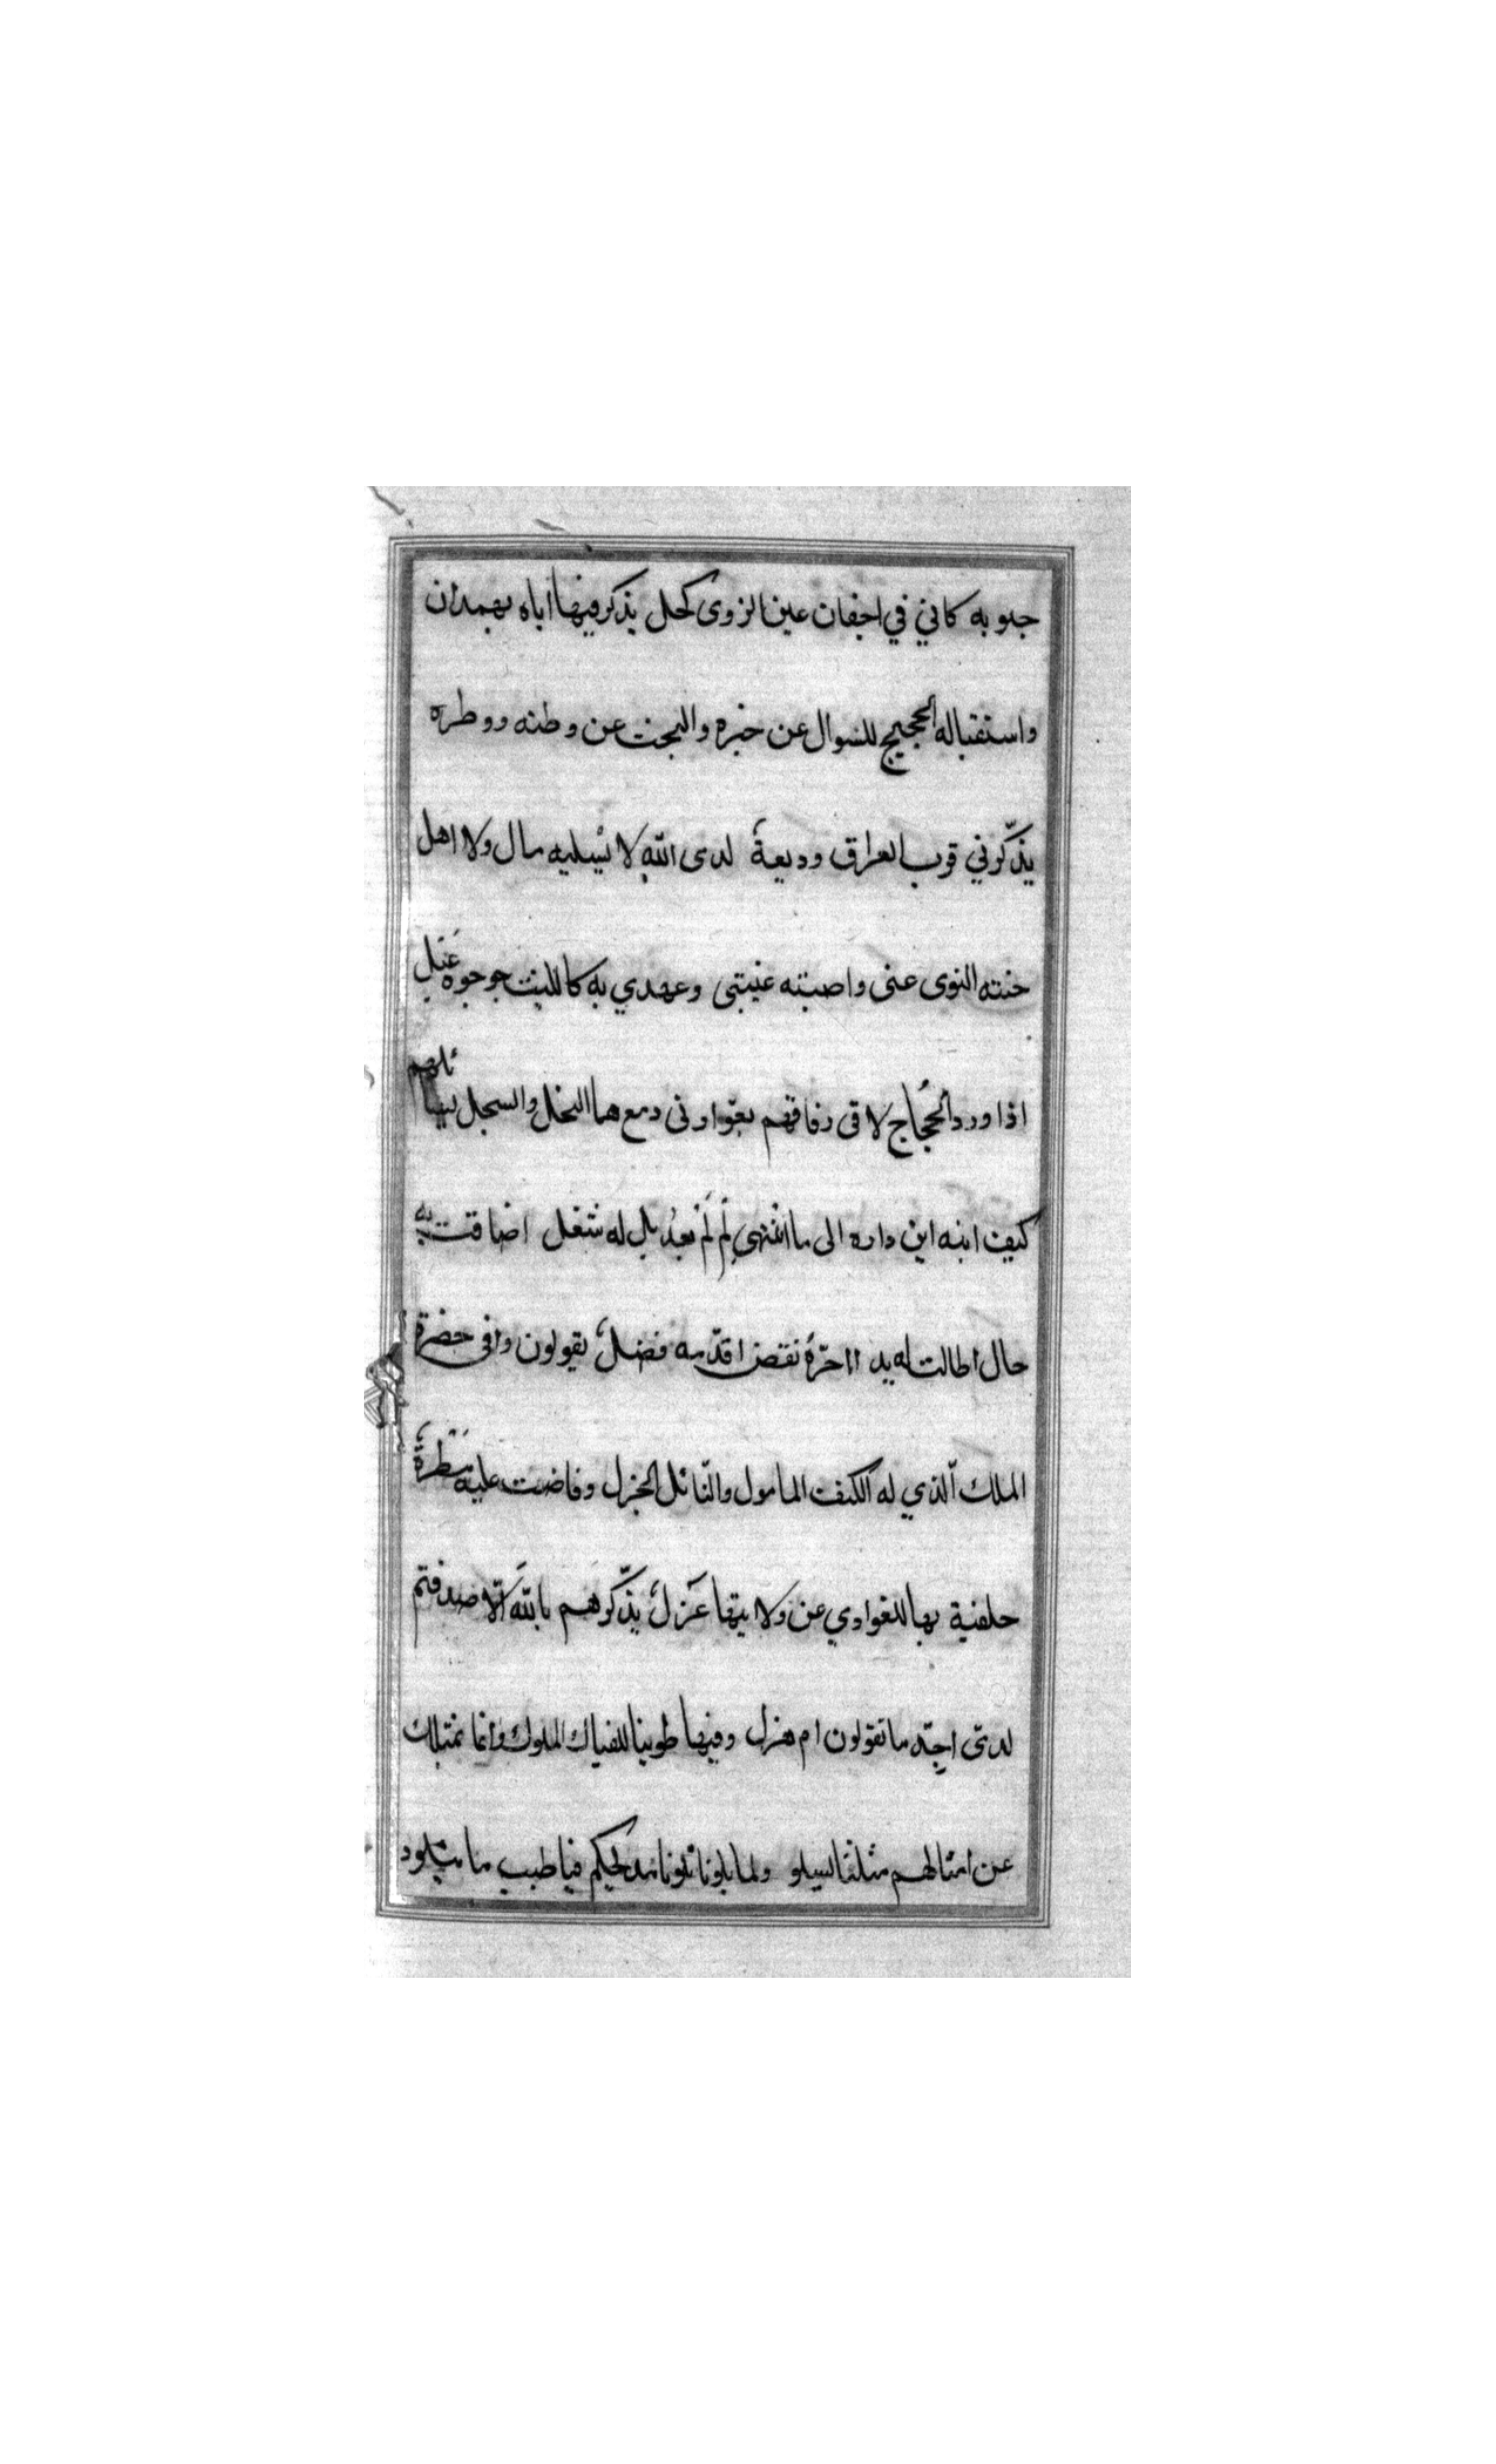 جوبه كاني في اجفان عين الزوى كحل يذكر فيها اباه بهمدان
واستقباله الحجيج للسوال عن خبره والبحث عن وطنه ووطره
يذكّرني قرب العراق وديعةً لدى الله لا يسليه مال ولا اهل
حنته النوى عنى واضنته غيبتى وعهدي به كالليث جوجوه عبل
اذا ورد الحجّاج لاقى رفاقهم بفوّارتى دمع هما النجل والسجل يسائلهم
كيف ابنه اين داره الى ما انتهى لِمَ لَمْ يعد بل له شغل اضاقت به
حال اطالت له يد ااخّره نقص اقدّمه فضلٌ يقولون وافى حضرة
الملك الّذي له الكنف المامول والنّائل الجزل وفاضت عليه مَطْرَةٌ
خلفية بها للغوادي عن ولايتها عَزلٌ يذكّرهم بالله الّا صدقتم
لدىّ اجِدّ ما تقولون ام هزل وفيها طوينا للقياك الملوك وانما بمثلك
عن امثالهم مثلنا يسلو ولما بلونا تلونا مديحكم فيا طيب ما نبلو